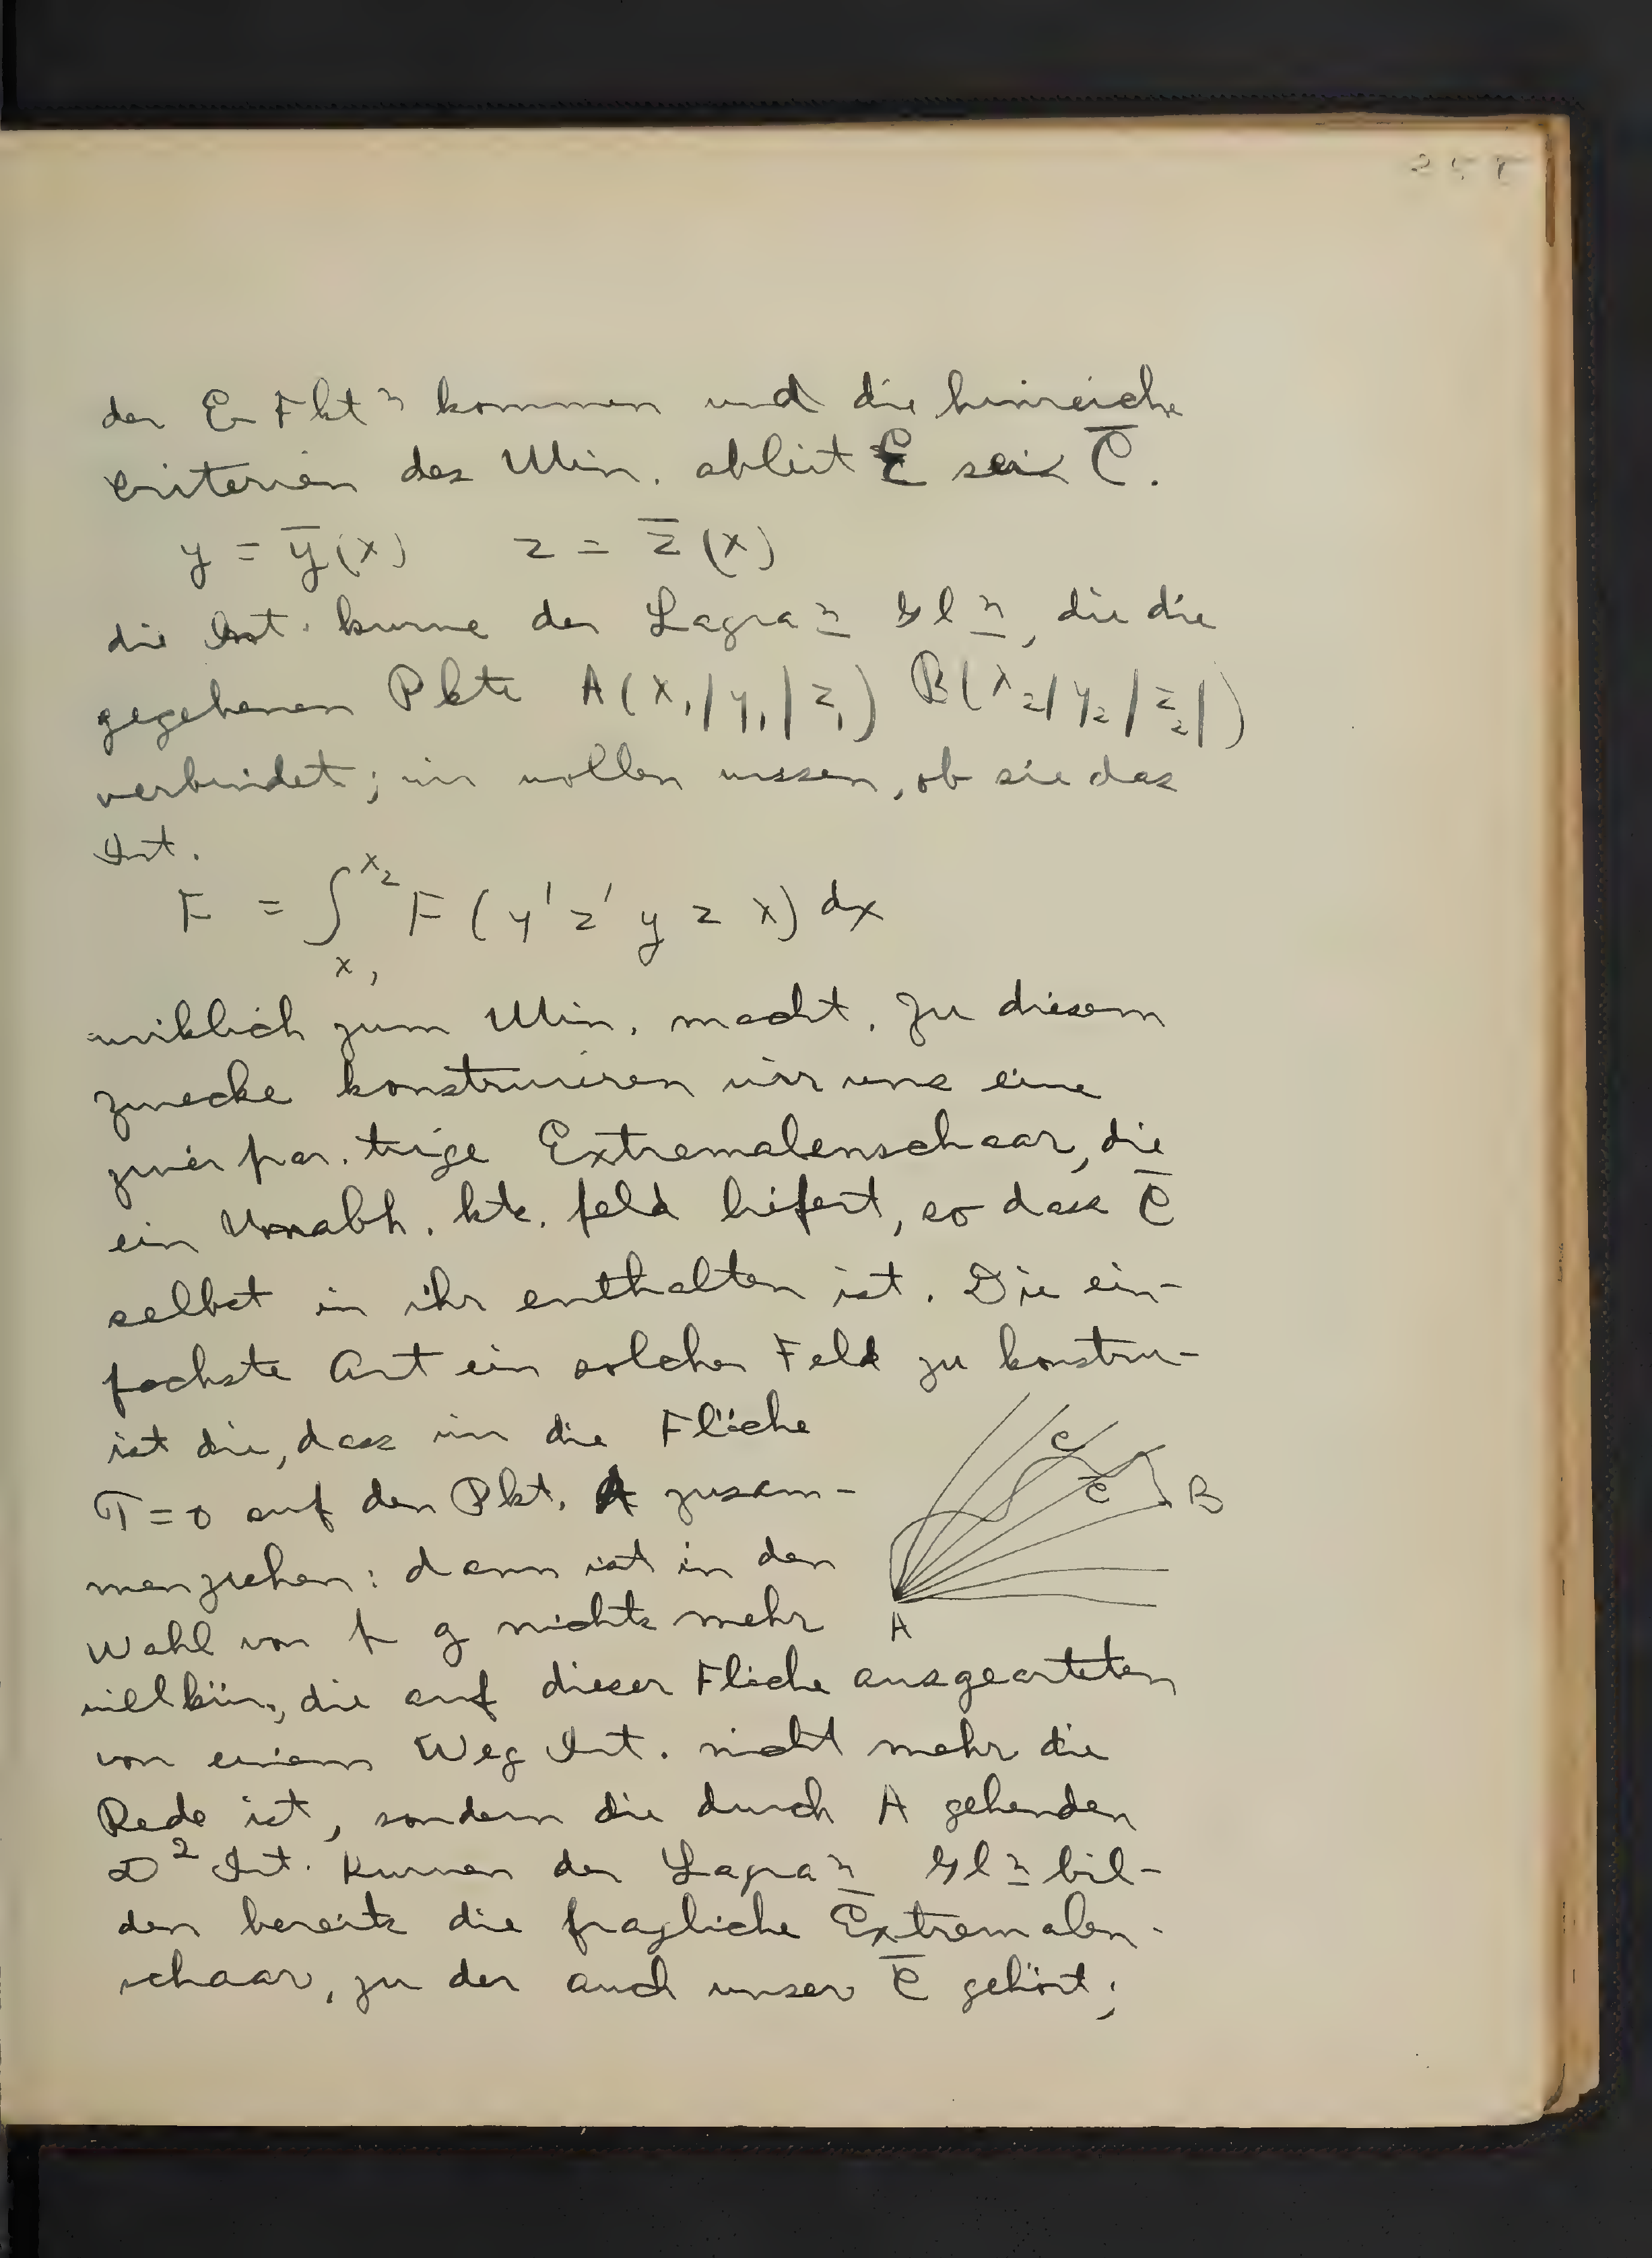 der E Fkt n kommen und die hinreich.
Criterien des Min. ableit E sei C̅.
y = y̅(x)   z = z̅(x)
die Int. kurve der Lagra n Gl n, die die
gegebenen Pkte A(x₁|y₁|z₁) B(x₂|y₂|z₂|)
verbindet; wir wollen wissen, ob sie das
Int.
F = ∫ₓ₁ˣ² F(y' z' y z x) dx
wirklich zum Min. macht. Zu diesem
Zwecke konstruiren wir uns eine
zwei par. trige Extremalenschaar, die
ein Unabh. kts. feld liefert, so dass C̅
selbst in ihr enthalten ist. Die ein-
fachste Art ein solches Feld zu konstru-
ist die, dass wir die Fläche
T=0 auf den Pkt. A zusam-
menziehen: dann ist in der
Wahl von f g nichts mehr
willkür., die auf dieser Fläche ausgearteten
von einem Weg Int. nicht mehr die
Rede ist, sondern die durch A gehenden
∞² Int. Kurven der Lagra n Gl n bil-
den bereits die fragliche Extremalen-
schaar, zu der auch unser C̅ gehört;
C
C̅
B
A